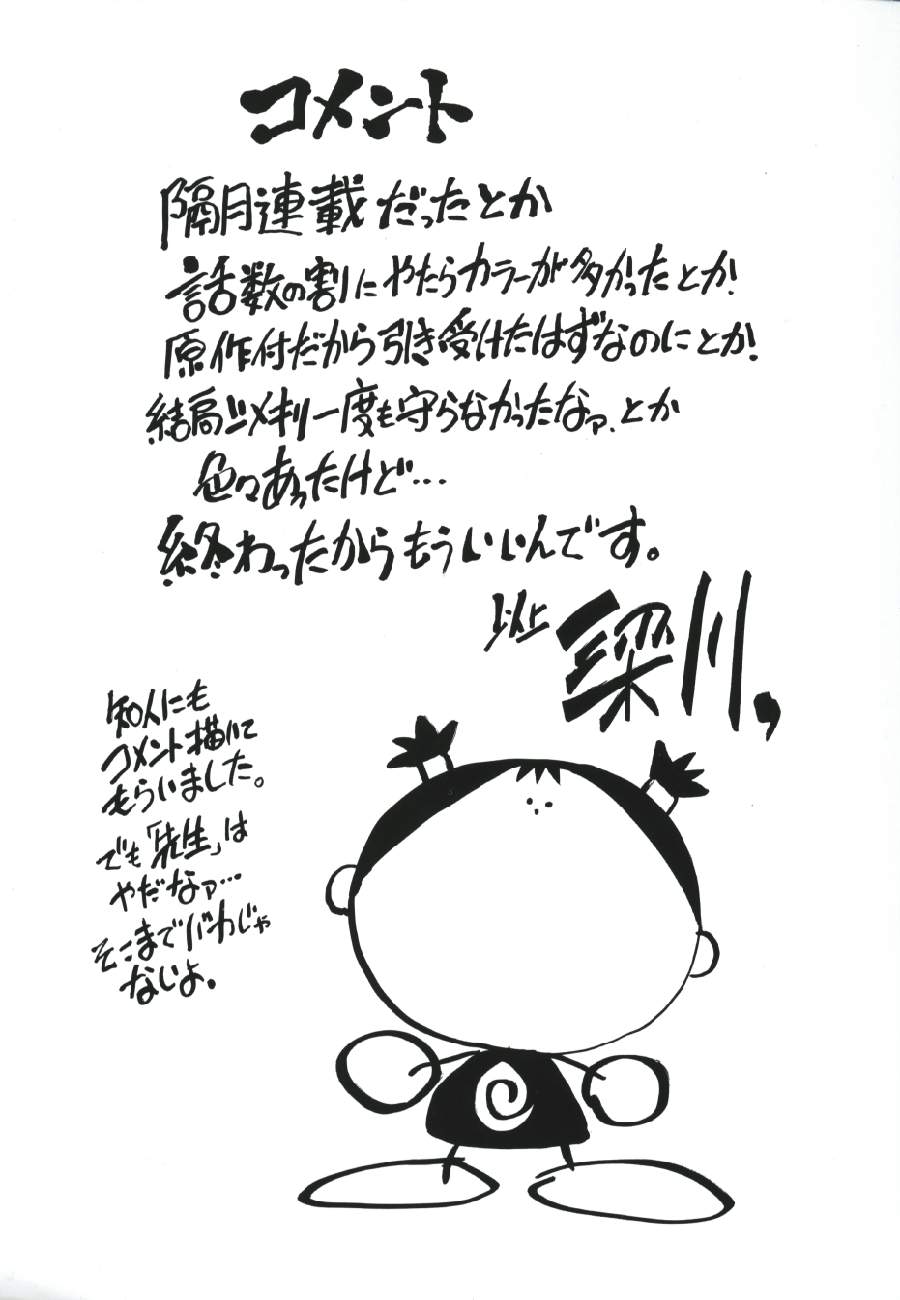 コメント
隔月連載だったとか
話数の割にやたらカラーが多かったとか.
原作付だから引き受けたはずなのにとか.
結局〆メキリ一度も守らなかったなァ、とか
色々あったけど…
終わったからもういいんです。
以上 深川,
知人にも
コメント描いて
もらいました。
でも「先生」は
やだなァ…
そこまでバカじゃ
ないよ。